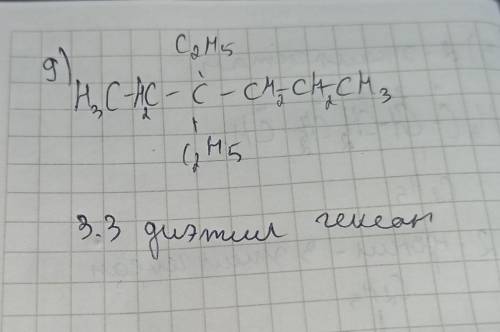 g)
C₂H₅
H₃C-H₂C-C-CH₂-CH₂CH₃
C₂H5
3.3 диэтил гексан